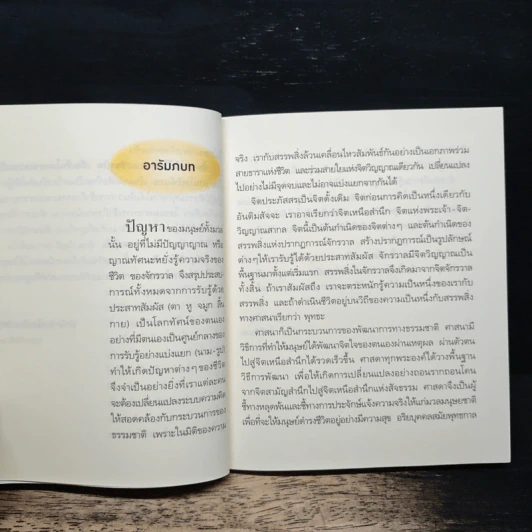 อารัมภบท
ปัญหาของมนุษย์ทั้งมวล
นั้น อยู่ที่ไม่มีปัญญาญาณ หรือ
ญาณทัศนะหยั่งรู้ความจริงของ
ชีวิต ของจักรวาล จึงสรุปประสบ-
การณ์ทั้งหมดจากการรับรู้ด้วย
ประสาทสัมผัส (ตา หู จมูก ลิ้น
กาย) เป็นโลกทัศน์ของตนเอง
อย่างที่มีตนเองเป็นศูนย์กลางของ
การรับรู้อย่างแบ่งแยก (นาม-รูป)
ทำให้เกิดปัญหาต่างๆ ของชีวิต
จึงจำเป็นอย่างยิ่งที่เราแต่ละคน
จะต้องเปลี่ยนแปลงระบบความคิด
ให้สอดคล้องกับกระบวนการของ
ธรรมชาติ เพราะในมิติของความ
จริง เรากับสรรพสิ่งล้วนเคลื่อนไหวสัมพันธ์กันอย่างเป็นเอกภาพร่วม
สายธาราแห่งชีวิต และร่วมสายใยแห่งจิตวิญญาณเดียวกัน เปลี่ยนแปลง
ไปอย่างไม่มีจุดจบและไม่อาจแบ่งแยกจากกันได้
จิตประภัสสรเป็นจิตดั้งเดิม จิตก่อนการคิดเป็นหนึ่งเดียวกับ
อันติมสัจจะ เราอาจเรียกว่าจิตเหนือสำนึก จิตแห่งพระเจ้า-จิต-
วิญญาณสากล จิตนี้เป็นต้นกำเนิดของจิตต่างๆ และต้นกำเนิดของ
สรรพสิ่งแห่งปรากฏการณ์จักรวาล สร้างปรากฏการณ์เป็นรูปลักษณ์
ต่างๆให้เรารับรู้ได้ด้วยประสาทสัมผัส จักรวาลมีจิตวิญญาณเป็น
พื้นฐานมาตั้งแต่เริ่มแรก สรรพสิ่งในจักรวาลจึงเกิดมาจากจิตจักรวาล
ทั้งสิ้น ถ้าเราสัมผัสถึง เราจะตระหนักรู้ความเป็นหนึ่งของเรากับ
สรรพสิ่ง และถ้าดำเนินชีวิตอยู่บนวิถีของความเป็นหนึ่งกับสรรพสิ่ง
ทางศาสนาเรียกว่า พุทธะ
ศาสนาก็เป็นกระบวนการของพัฒนาการทางธรรมชาติ ศาสนามี
วิธีการที่ทำให้มนุษย์ได้พัฒนาจิตใจของตนเองผ่านเหตุผล ผ่านตัวตน
ไปสู่จิตเหนือสำนึกได้รวดเร็วขึ้น ศาสดาทุกพระองค์ได้วางพื้นฐาน
วิธีการพัฒนา เพื่อให้เกิดการเปลี่ยนแปลงอย่างถอนรากถอนโคน
จากจิตสามัญสำนึกไปสู่จิตเหนือสำนึกแห่งสัจธรรม ศาสดาจึงเป็นผู้
ชี้ทางหลุดพ้นและชี้ทางการประจักษ์แจ้งความจริงให้แก่มวลมนุษยชาติ
เพื่อที่จะให้มนุษย์ดำรงชีวิตอยู่อย่างมีความสุข อริยบุคคลสมัยพุทธกาล